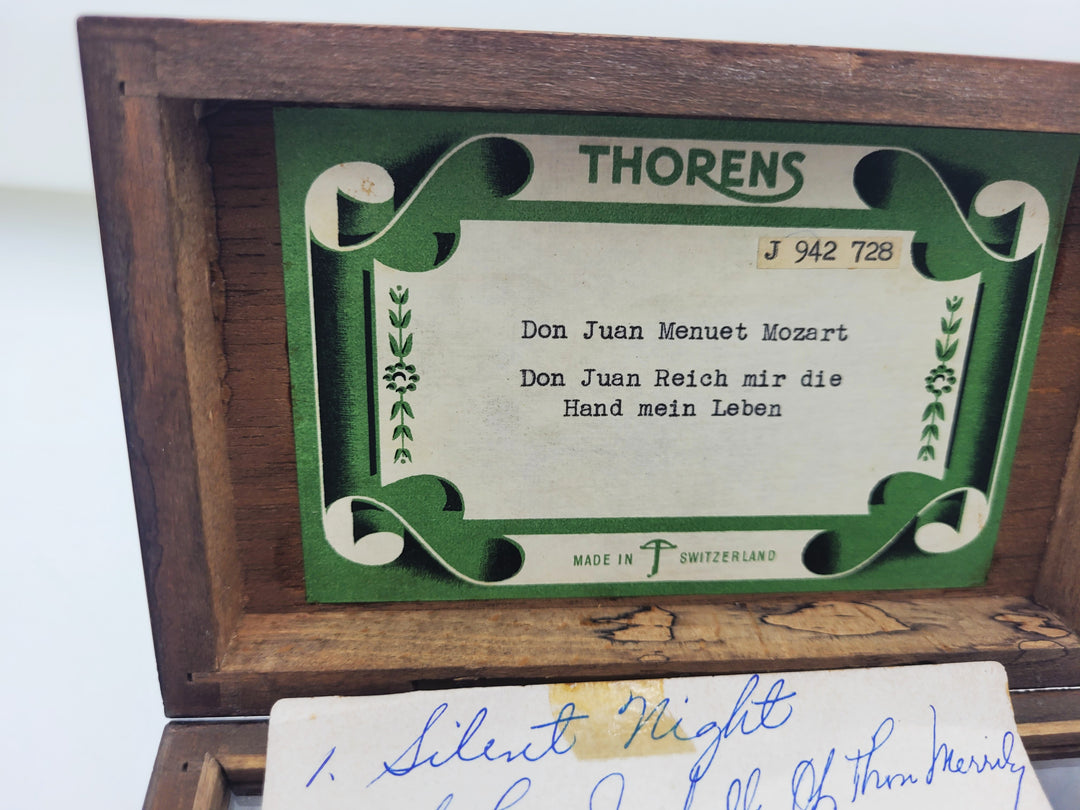 THORENS
J 942 728
Don Juan Menuet Mozart
Don Juan Reich mir die
Hand mein Leben
MADE IN SWITZERLAND
1. Silent Night
Merrily